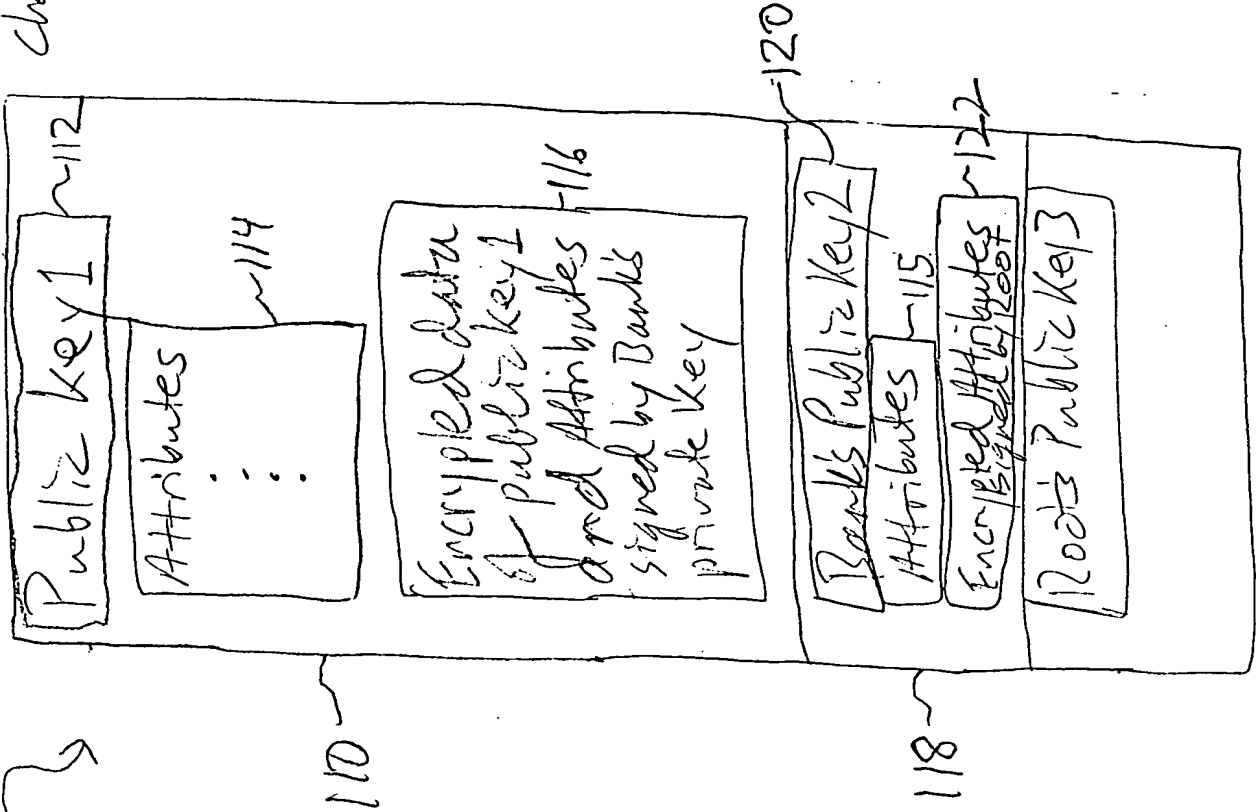 Public Key 1
112
Attributes
114
Encrypted data
of Public key 1
and Attributes
signed by Bank's
private Key
116
110
Bank's Public Key 2
120
Attributes
115
Encrypted Attributes
signed by root
122
118
Root's Public Key 3